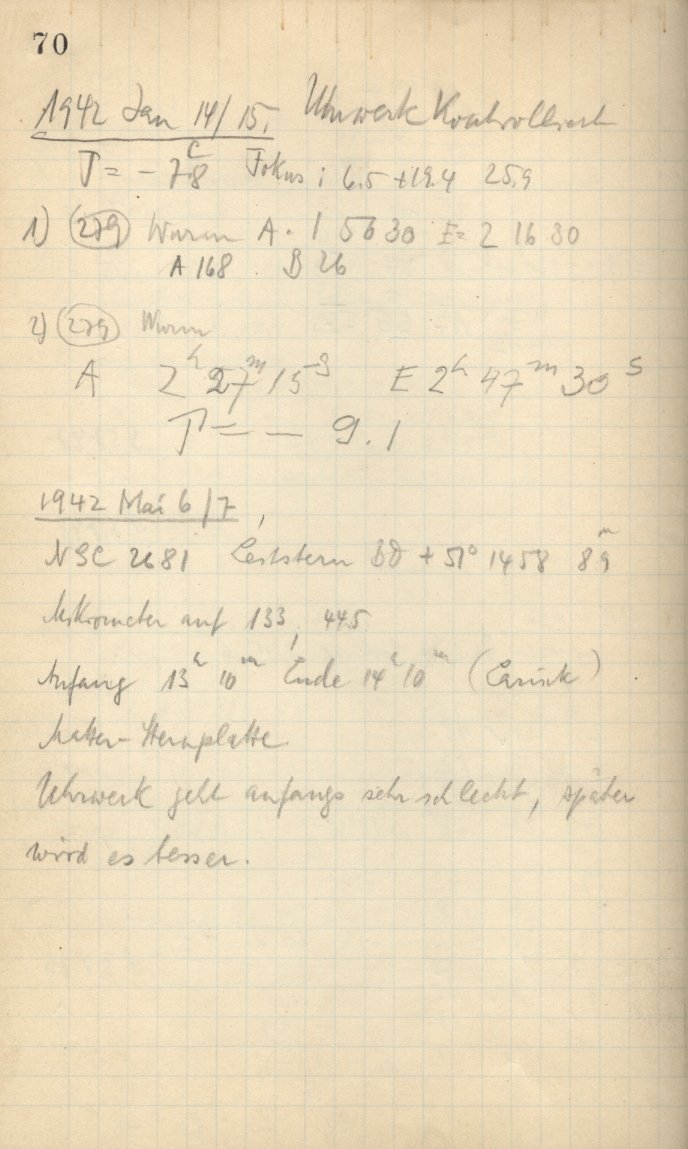 70
1942 Jan 14/15. Uhrwerk Kontrolliert
T = - 7.8 C Fokus: 6.5 + 19.4 25.9
1) 279 A. 1 56 30 E= 2 16 30
A 168 B 26
2) 279
A 2h 27m 15s E 2h 47m 30s
T = - 9.1
1942 Mai 6/7,
NGC 2681 Leitstern BD + 51° 1458 8.9m
Mikrometer auf 133, 445
Anfang 13h 10m Ende 14h 10m
-Sternplatte
Uhrwerk geht anfangs sehr schlecht, später
wird es besser.